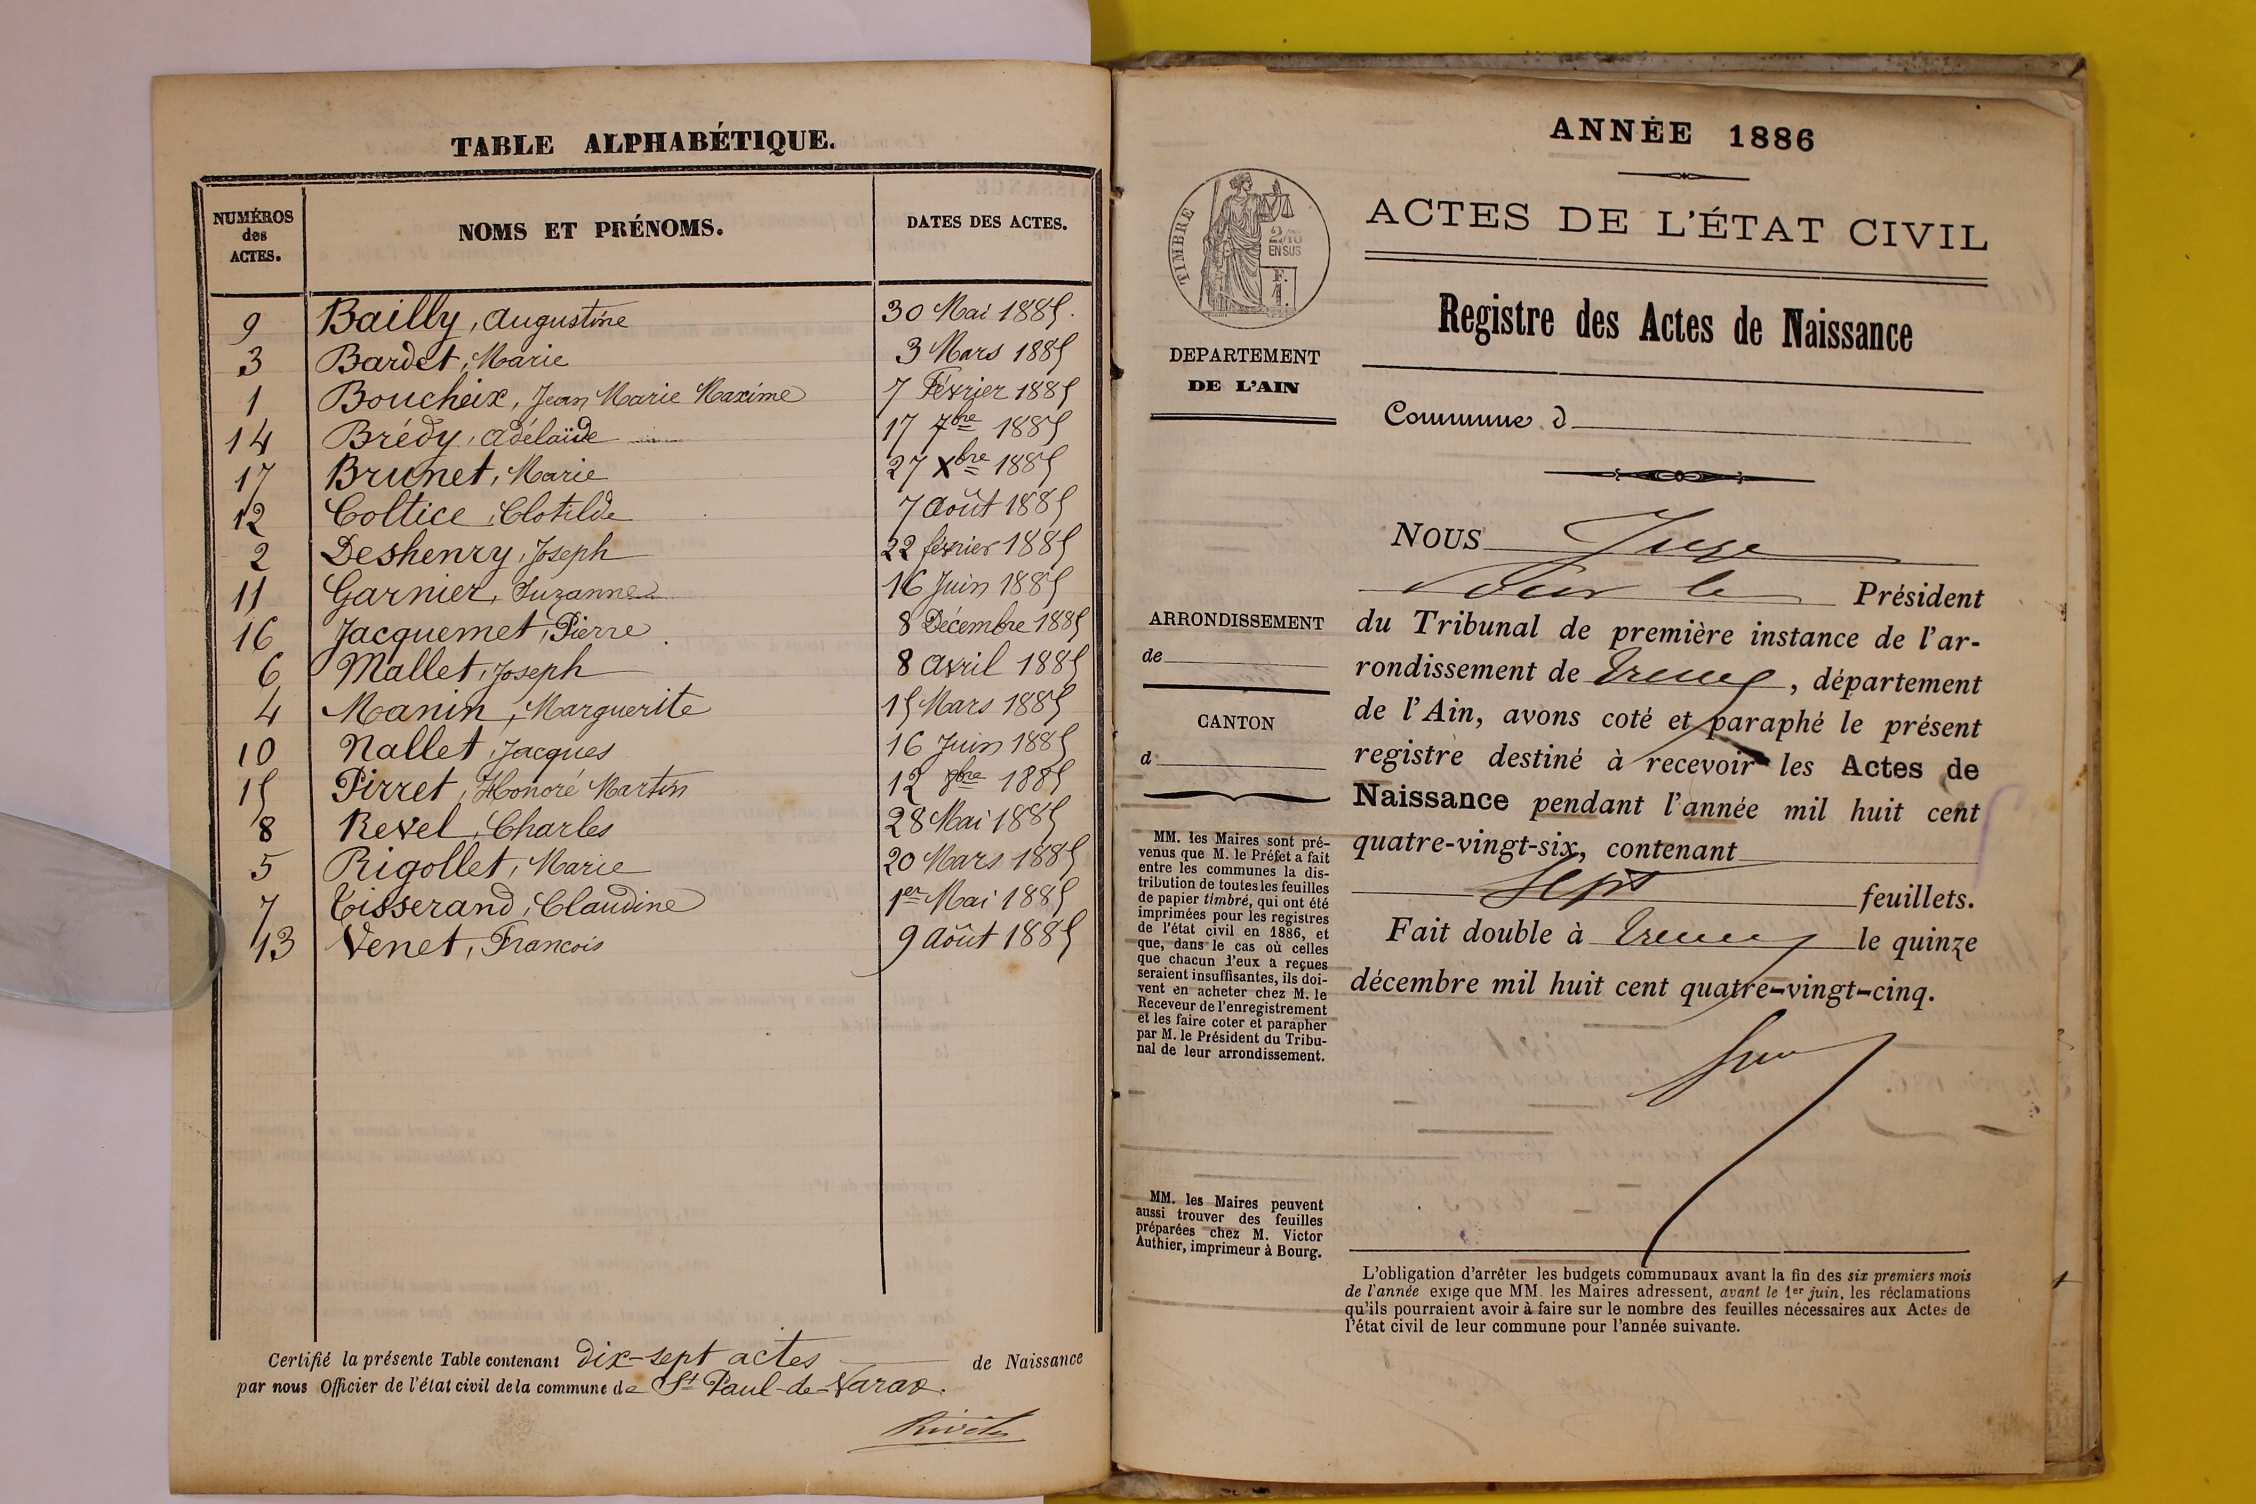 TABLE ALPHABÉTIQUE.
NUMÉROS des ACTES.
NOMS ET PRÉNOMS.
DATES DES ACTES.
9 Bailly, Augustine 30 Mai 1885.
3 Bardet, Marie 3 Mars 1885
1 Boucheix, Jean Marie Maxime 7 Février 1885
14 Brédy, Adélaïde 17 7bre 1885
17 Brunet, Marie 27 Xbre 1885
12 Coltice, Clotilde 7 Août 1885
2 Deshenry, Joseph 22 février 1885
11 Garnier, Suzanne 16 Juin 1885
16 Jacquemet, Pierre 8 Décembre 1885
6 Mallet, Joseph 8 Avril 1885
4 Manin, Marguerite 15 Mars 1885
10 Nallet, Jacques 16 Juin 1885
15 Pirret, Honoré Martin 12 8bre 1885
8 Revel, Charles 28 Mai 1885
5 Rigollet, Marie 20 Mars 1885
7 Tisserand, Claudine 1er Mai 1885
13 Venet, Francois 9 Août 1885
Certifié la présente Table contenant dix-sept actes de Naissance
par nous Officier de l'état civil de la commune de St Paul-de-Varax.
ANNÉE 1886
ACTES DE L'ÉTAT CIVIL
TIMBRE
2/10
EN SUS
F.
1.
Registre des Actes de Naissance
DEPARTEMENT
DE L'AIN
Commune d
NOUS Juge
Pour le Président
ARRONDISSEMENT
de
du Tribunal de première instance de l'ar-
rondissement de Trévoux, département
CANTON
d
de l'Ain, avons coté et paraphé le présent
registre destiné à recevoir les Actes de
Naissance pendant l'année mil huit cent
quatre-vingt-six, contenant
Sept feuillets.
Fait double à Trévoux le quinze
décembre mil huit cent quatre-vingt-cinq.
MM. les Maires sont pré-
venus que M. le Préfet a fait
entre les communes la dis-
tribution de toutes les feuilles
de papier timbré, qui ont été
imprimées pour les registres
de l'état civil en 1886, et
que, dans le cas où celles
que chacun d'eux a reçues
seraient insuffisantes, ils doi-
vent en acheter chez M. le
Receveur de l'enregistrement
et les faire coter et parapher
par M. le Président du Tribu-
nal de leur arrondissement.
MM. les Maires peuvent
aussi trouver des feuilles
préparées chez M. Victor
Authier, imprimeur à Bourg.
L'obligation d'arrêter les budgets communaux avant la fin des six premiers mois
de l'année exige que MM. les Maires adressent, avant le 1er juin, les réclamations
qu'ils pourraient avoir à faire sur le nombre des feuilles nécessaires aux Actes de
l'état civil de leur commune pour l'année suivante.